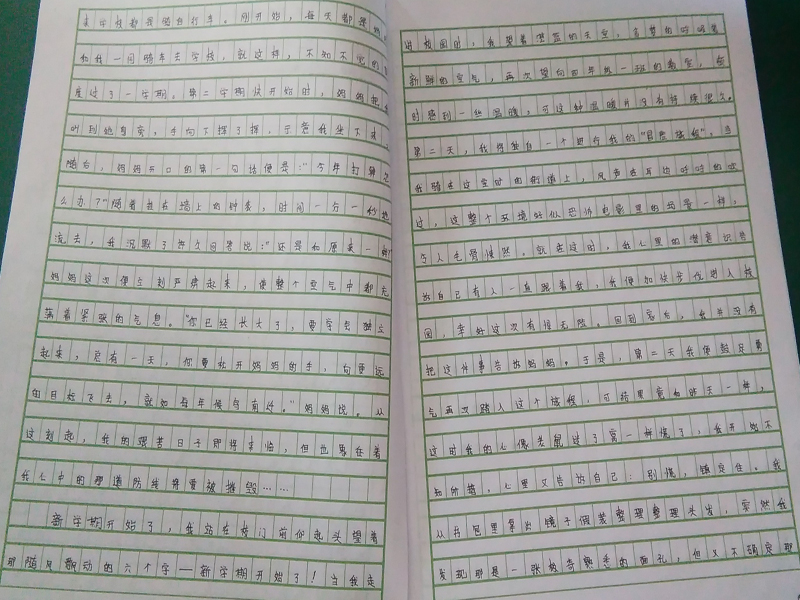 来学校都我骑自行车。刚开始，每天都是妈
和我一同骑车去学校，就这样，不知不觉的
度过了一学期。第二学期快开始时，妈妈把我
叫到她身旁，手向下挥了挥，示意我坐下来。
随后，妈妈开口的第一句话便是："今年打算怎
么办？"随着挂在墙上的钟表，时间一分一秒地
流去，我沉默了许久回答说："还是和原来一样
妈妈这次便立刻严肃起来，使整个空气中都充
满着紧张的气息。"你已经长大了，要学会独立
起来，总有一天，你要松开妈妈的手，向更远
的目标飞去，就如每年候鸟南迁。"妈妈说。从
这刻起，我的艰苦日子即将来临，但也意味着
我心中的那道防线将要被摧毁……
新学期开始了，我站在校门前仰起头望着
那随风飘动的六个字——新学期开始了！当我走
进校园时，我望着湛蓝的天空，贪婪的呼吸着
新鲜的空气，再次望向四年级一班的教室，
时感到一丝温暖，可这种温暖并没有持续很久。
第二天，我将独自一个进行我的"冒险旅程"。当
我骑在这空旷的街道上，风声在耳边呼呼的吹
过，这整个环境好似恐怖电影里的场景一样，
令人毛骨悚然，就在这时，我心里的潜意识告
诉自己有人一直跟着我，我便加快步伐进入校
园，幸好这次有惊无险。回到家后，我并没有
把这件事告诉妈妈。于是，第二天我便鼓足勇
气再次踏入这个旅程，可结果竟和昨天一样，
这时我的心像老鼠过了窝一样慌了，我开始不
知所措，心里又告诉自己：别慌，镇定住。我
从书包里拿出镜子假装整理整理头发，突然我
发现那是一张极奇熟悉的面孔，但又不确定那